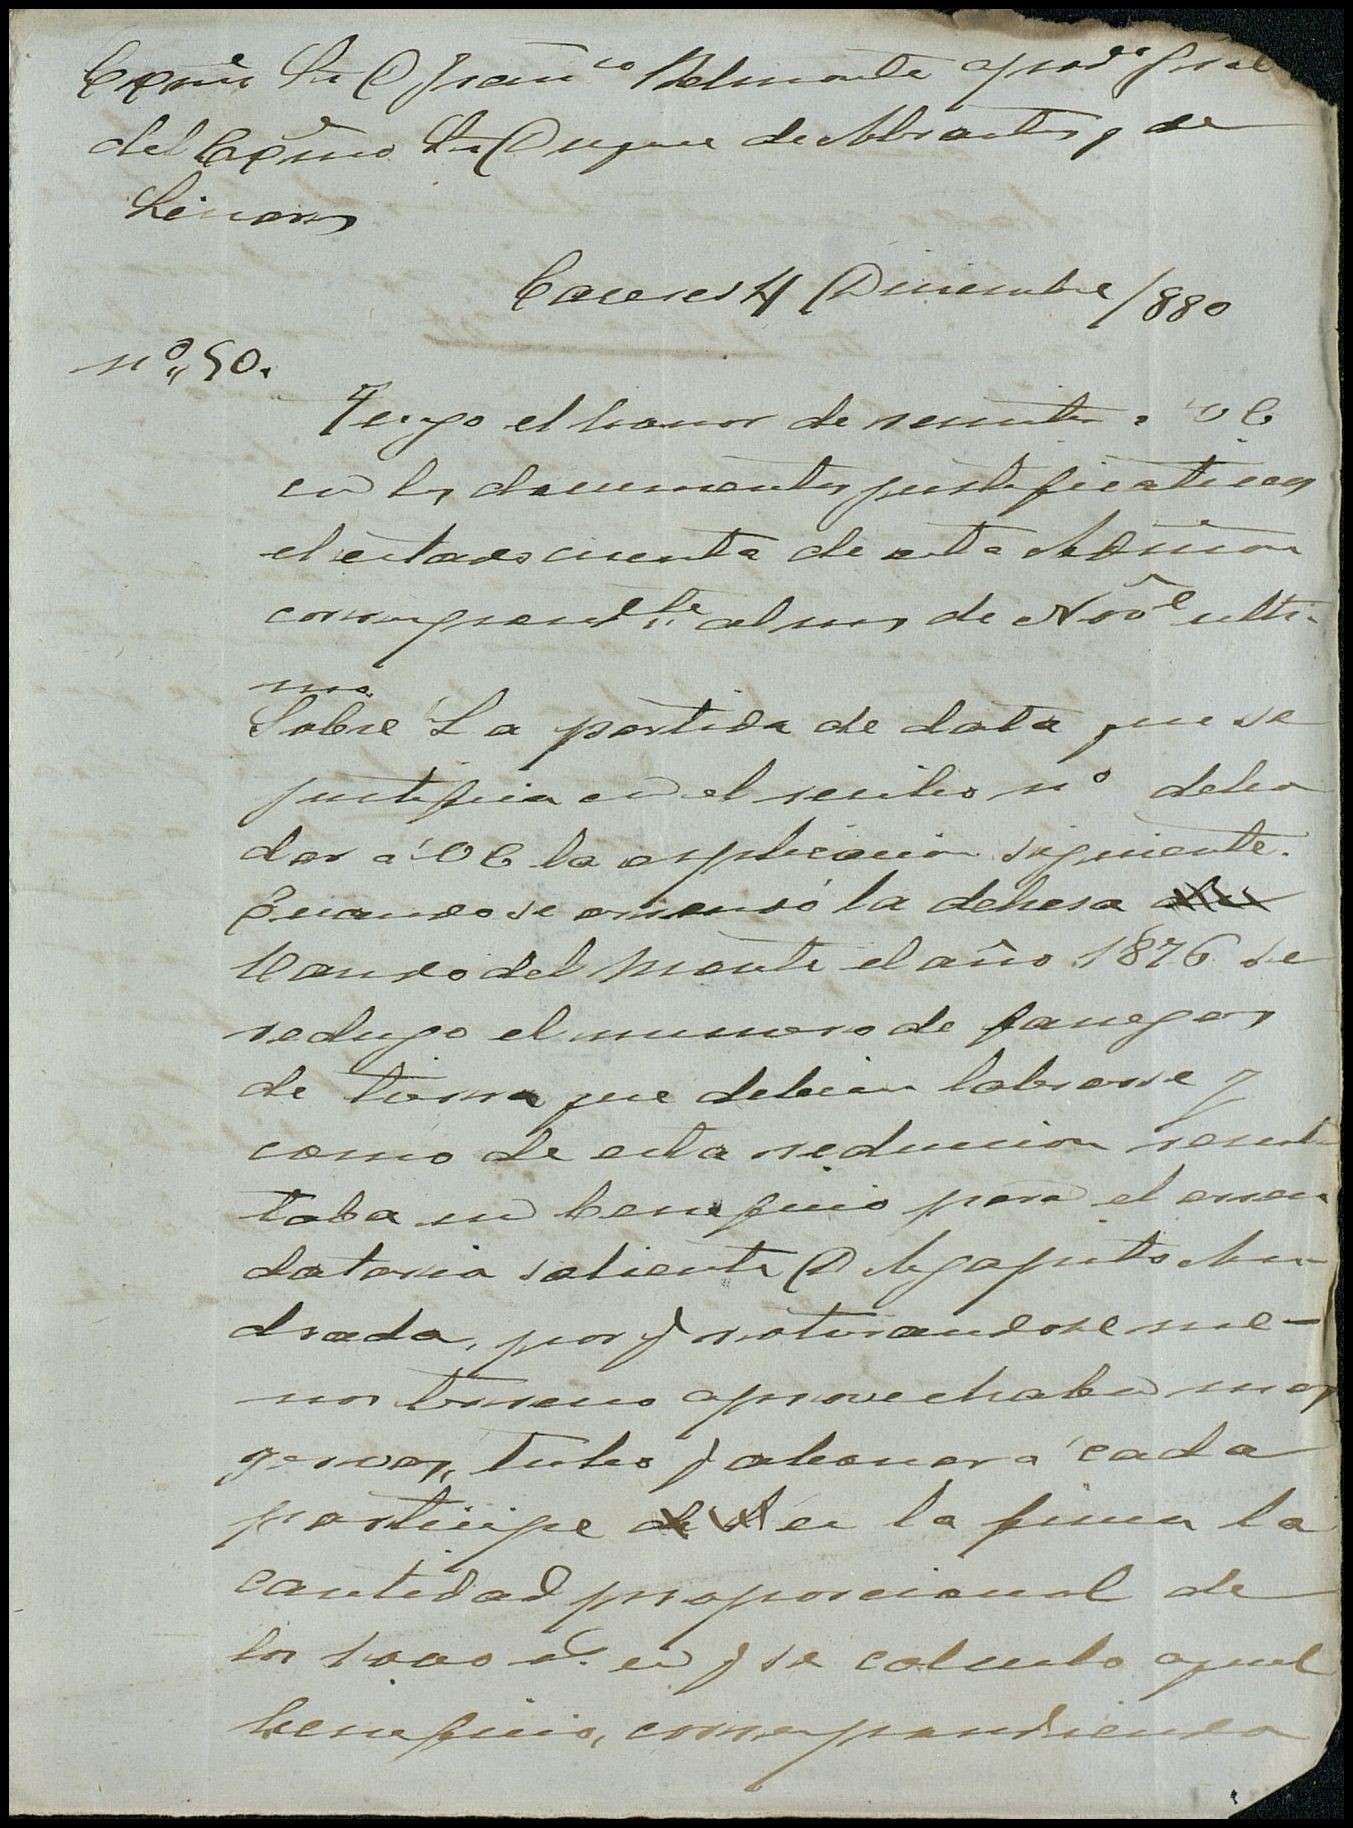 Excmo Sr D Franco Belmonte apodo Gral
del Excmo Sr Duque de Abrantes y de
Linares
Caceres 4 Diciembre /880
nº,, 50.
Tengo el honor de remitir a V E
con los documentos justificativos
el estado cuenta de esta Admon
correspondte al mes de Nove ulti-
mo.
Sobre La partida de data que se
justifica con el recibo nº debo
dar a V E la esplicacion siguiente.
Cuando se arrendó la dehesa
Campo del Monte el año 1876 se
redujo el numero de fanegas
de tierra que debian labrarse y
como de esta reduccion resul
taba un beneficio para el arren
datario saliente D Agapito An-
drada, por q roturandose me-
nos terreno aprovechaba mas
yervas, tubo q abonar a cada
participe en la finca la
cantidad proporcional de
los rs. en q se calculo aquel
beneficio, correspondiendo